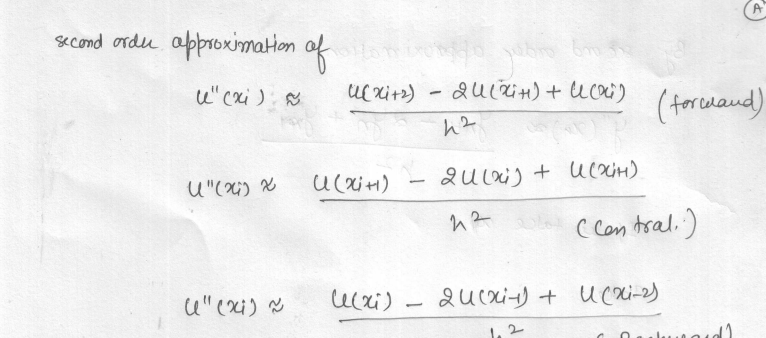 A
second order approximation of
u"(xi) ≈ u(xi+2) - 2u(xi+1) + u(xi) / h² (forward)
u"(xi) ≈ u(xi+1) - 2u(xi) + u(xi+1) / h² (Central.)
u"(xi) ≈ u(xi) - 2u(xi-1) + u(xi-2) / h²